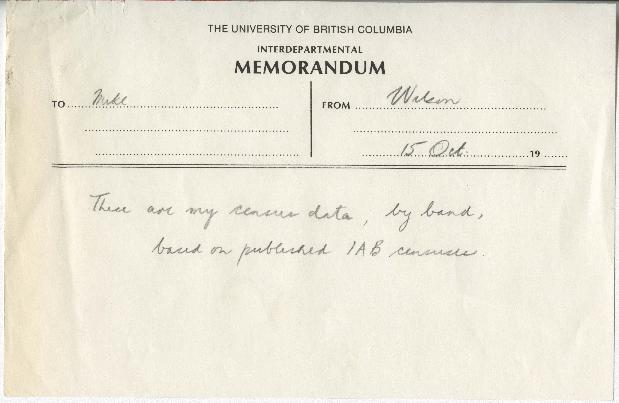 THE UNIVERSITY OF BRITISH COLUMBIA
INTERDEPARTMENTAL
MEMORANDUM
TO Mike FROM Wilson
15 Oct. 19
These are my census data, by band,
based on published IAB censuses.